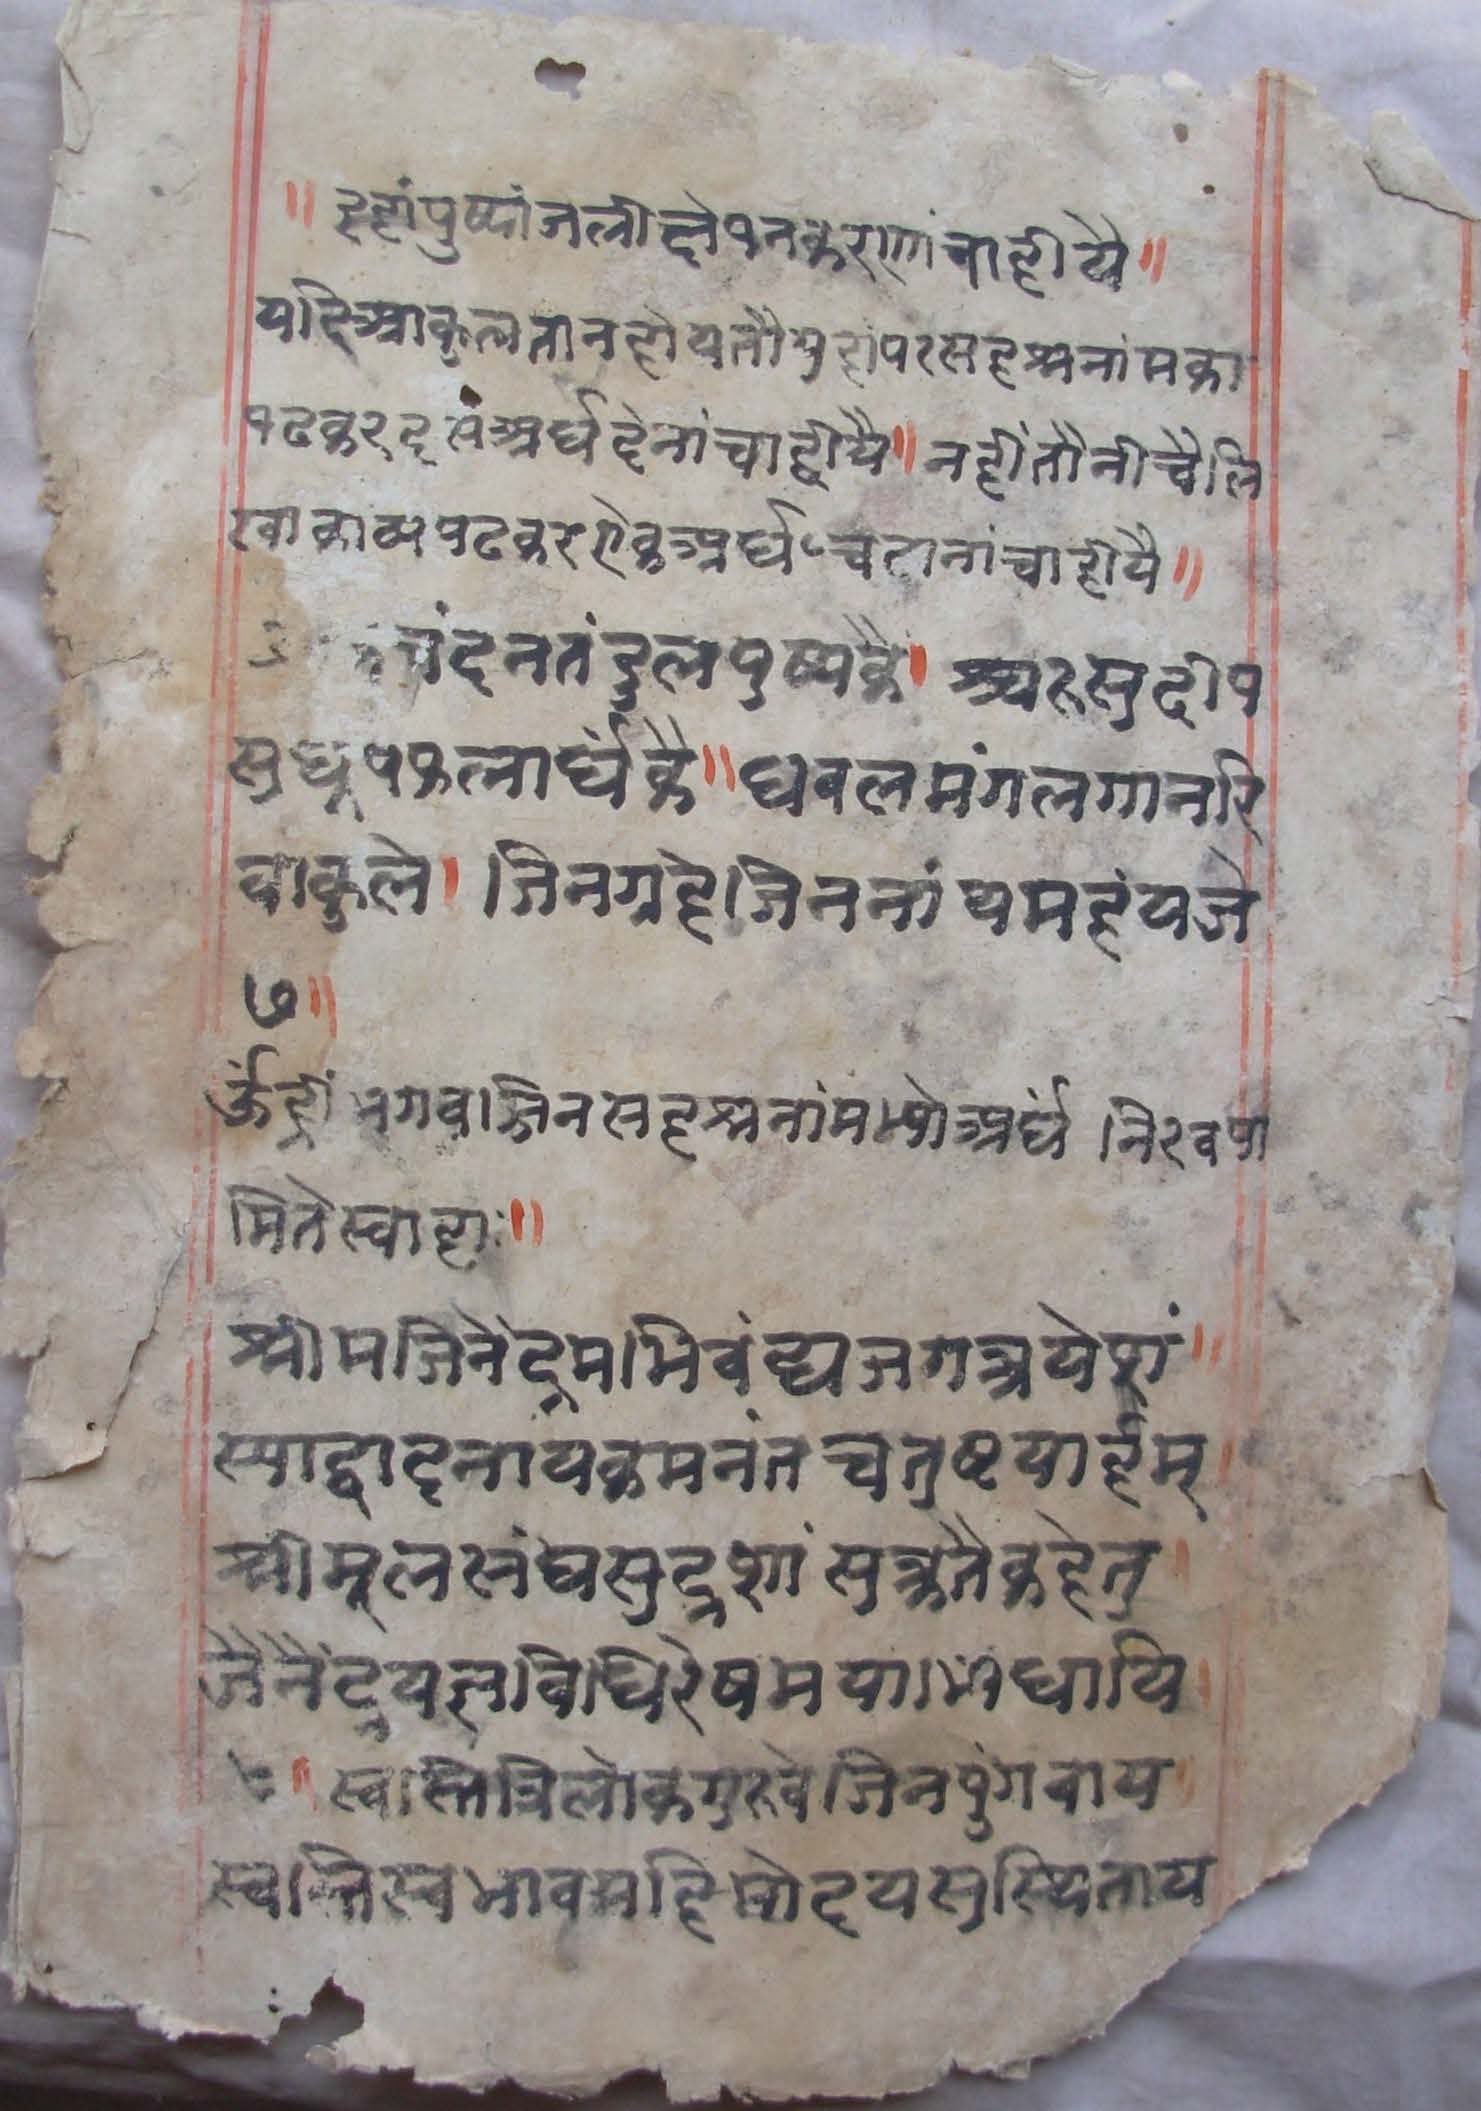 ॥ इहां पुष्पांजली क्षेपन करणां चाहीयै ॥
यदि आकुलता न होय तौ युहां पर सहश्रनांम का
पढकर दस अर्घ देनां चाहीयै ॥ नहीं तौ नीचै लि
खा काव्य पढकर ऐक अर्घ चढानां चाहीयै ॥
चंदनतंदुलपुष्पकै । श्चरुसुदीप
सुधूपफलार्घंकै ॥ धवलमंगलगानरि
वाकुले । जिनगृहे जिननांथमहं यजे
७ ॥
ॐ ह्रीं भगवज्जिनसहश्रनांमभ्यो अर्घं निरवपा
मिते स्वाहाः ॥
श्रीमज्जिनेंद्रमभिवंद्य जगत्रयेशं ॥
स्याद्वादनायकमनंतचतुष्टयार्हम् ।
श्रीमूलसंघसुदृशां सुकृतैकहेतु ।
जैनेंद्रयज्ञविधिरेषमयाभिधायि ।
८ ॥ स्वस्ति त्रिलोकगुरुवे जिनपुंगवाय ॥
स्वस्ति स्वभावमहिमोदयसुस्थिताय